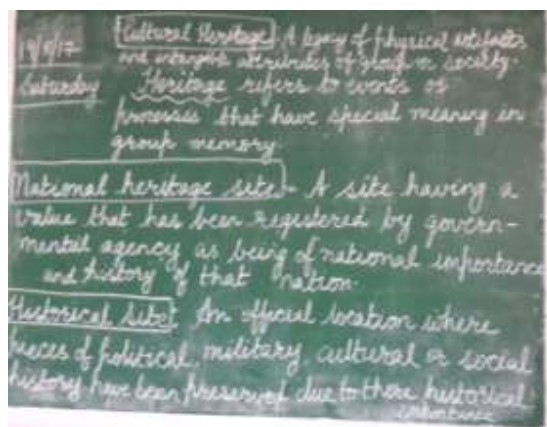 Cultural Heritage - A legacy of physical artefacts
19/8/17 and intangible attributes of group or society.
Saturday Heritage refers to events or
processes that have special meaning in
group memory.
National heritage site - A site having a
value that has been registered by govern-
mental agency as being of national importance
and history of that nation.
Historical Site - An official location where
pieces of political, military, cultural or social
history have been preserved due to there historical
importance